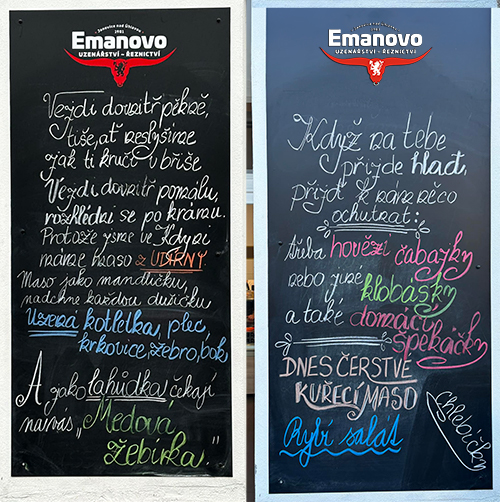 Janovice nad Úhlavou
1981
Emanovo
UZENÁŘSTVÍ - ŘEZNICTVÍ
Vejdi dovnitř pěkně,
tiše, ať neslyšíme
jak ti kručí v břiše
Vejdi dovnitř pomálu,
rozhlédni se po krámu.
Protože jsme ve Kdyni
máme maso z UDÍRNY
Maso jako mandličku,
nadchne každou dušičku
Uzená kotletka, plec,
krkovice, žebro, bok
A jako lahůdka čekají
na vás "Medová
žebírka."
Emanovo
UZENÁŘSTVÍ - ŘEZNICTVÍ
Když na tebe
přijde hlad,
přijď k nám něco
ochutnat:
třeba hovězí čabajky
nebo jiné klobásky
a také domácí
špekáčky
DNES ČERSTVÉ
KUŘECÍ MASO
Chlebíčky
Rybí salát